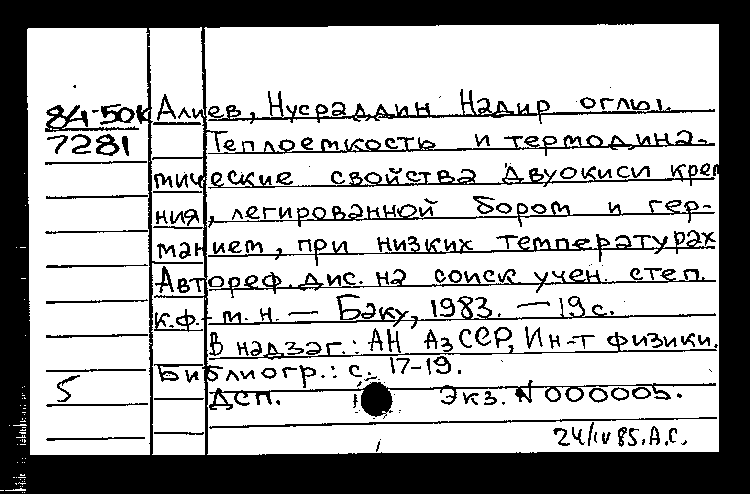 84-50к Алиев, Нусраддин Надир оглы.
7281 Теплоемкость и термодина-
мические свойства двуокиси крем
ния, легированной бором и гер-
манием, при низких температурах
Автореф. дис. на соиск. учен. степ.
к.ф.-м.н. — Баку, 1983. — 19 с.
В надзаг.: АН АзССР, Ин-т физики.
Библиогр.: с. 17-19.
5 ДСП. Экз. N 000005.
24/IV 85. А.С.